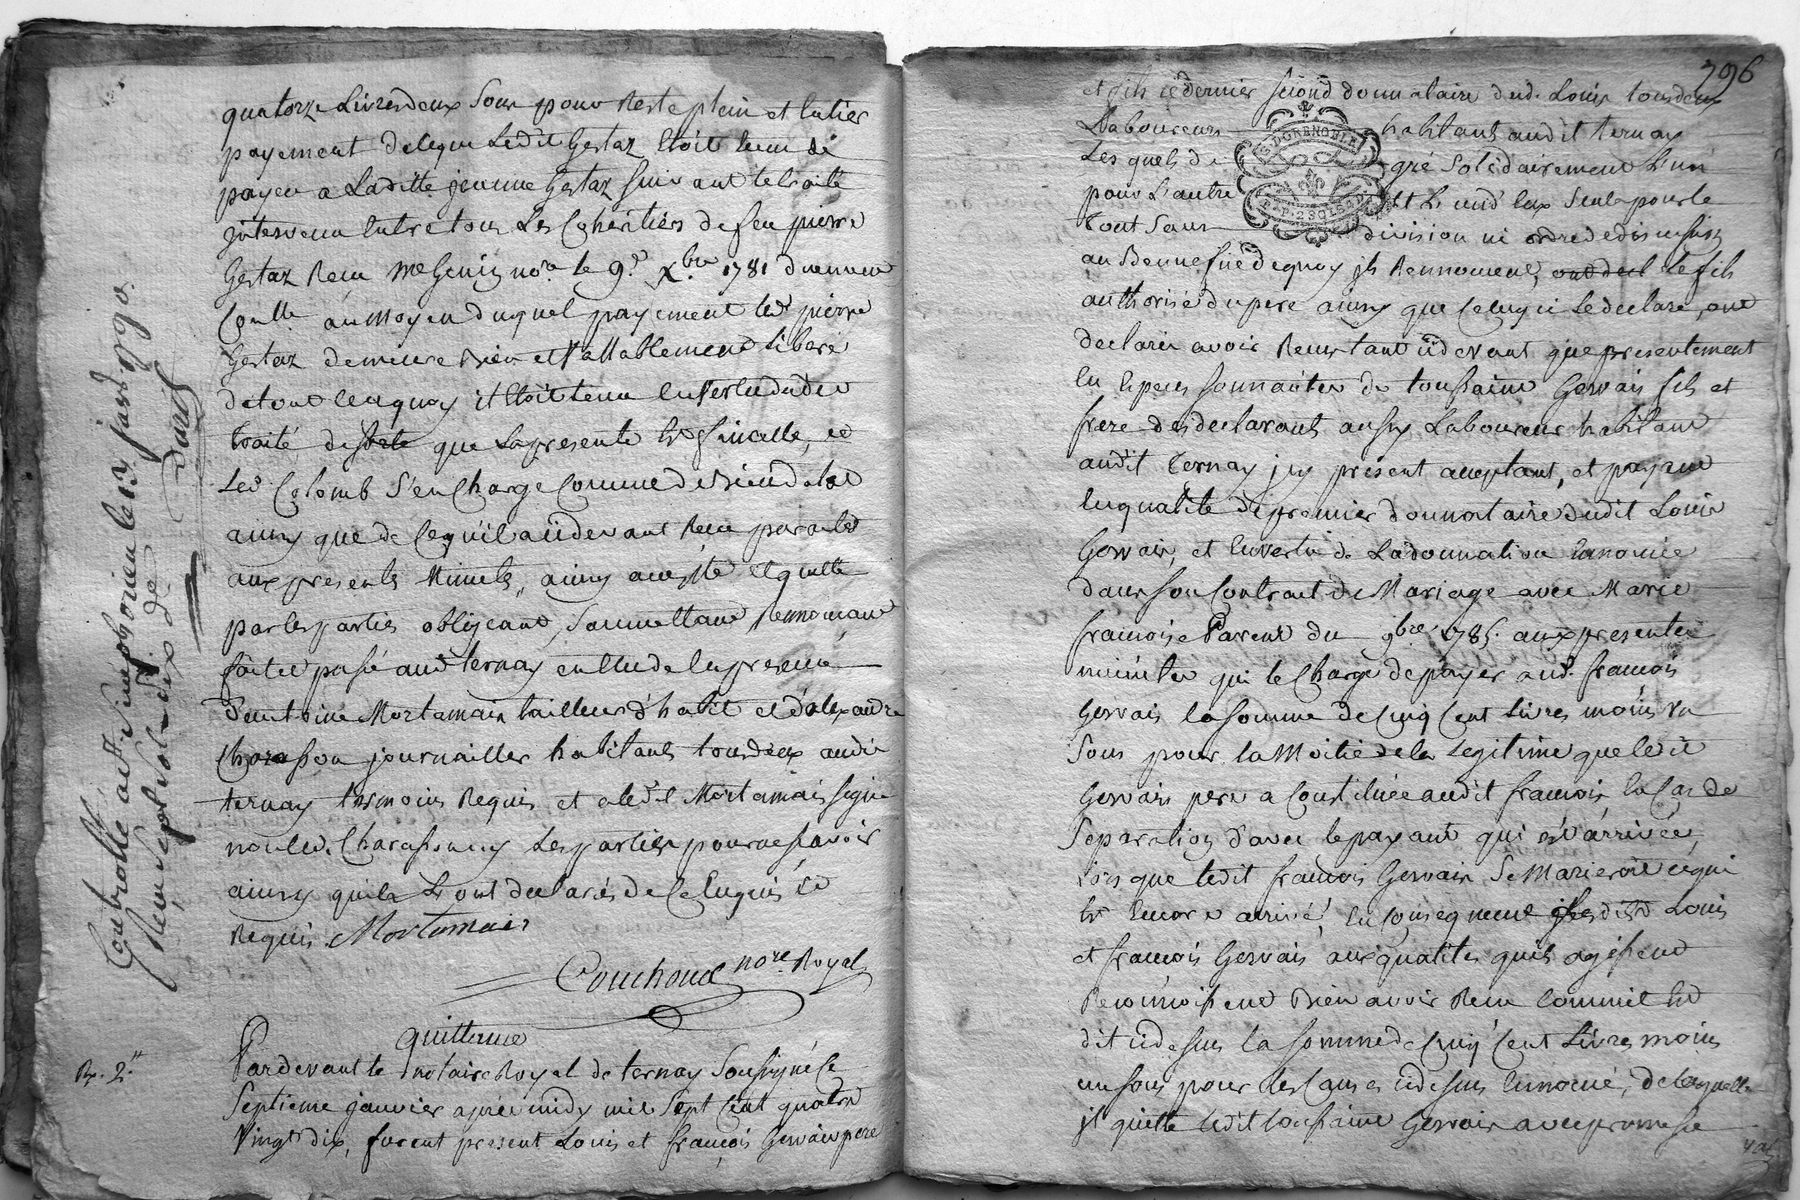 quatorze Livres deux Sous pour Reste plein et Entier
payement de ceque Ledit Gestaz Etoit tenu de
payer a Laditte jeanne Gestaz suivant le traité
intervenu Entre tous Les Coheritiers de feu pierre
Gestaz Recu Me Genin nore le 9e Xbre 1781 duement
Conllé au moyen duquel payement led pierre
Gestaz demeure Bien et Vallablement libéré
de tout ce aquoy il Etoit tenu En Vertu dudit
traité de sorte que La presente Et sincelle, et
Led Colomb S'en Charge Comme de Bien dotal
ainsy que de Cequil a cidevant Recu par acte
aux presents Minuts, ainsy accepté et quitté
par les parties obligeant, Soumettant, Rennoncant
fait et passé audt ternay en Etude En presence
d'antoine Mortamais tailleur d'habit et d'alexandre
Charasson journallier habitants tous deux audit
ternay temoins Requis et a ledit Mortamais signé
non led. Charasson ny Les parties pour ne scavoir
ainsy quils L'ont declarés de Ce Enquis et
Requis. Mortamais
Couchoud nore Royal
Controllé a St Simphorien le 13 janer 1790.
Recu sept sols six de
David
quittance
Rx. 2.tt
Pardevant le notaire Royal de ternay Soussigné Ce
Septieme janvier après midy mil Sept Cent quatre
Vingt dix, furent present Louis et françois Gervais pere
796
et fils ce dernier second donnataire dud. Louis tous deux
Laboureurs habitants audit ternay
Les quels de gré Solidairement L'un
pour L'autre Et L'un d'Eux Seul pour le
tout Sans division ni ordre de discussion
G. D. GRENOBLE
au Bennefice dequoy ils Rennoncent, le fils
authorisé du pere ainsy que Celuy ci le declare, ont
declarés avoir Recus tant cidevant que presentement
En Especes sonnantes de toussaint Gervais fils et
frere des declarants aussy Laboureur habitant
audit ternay icy present acceptant, et payant
En qualité de premier donnataire dudit Louis
Gervais, et En vertu de La donnation Enoncée
dans son Contract de Mariage avec Marie
françoise Parent du 9bre 1785. aux presentes
minutes qui le Charge de payer aud. françois
Gervais la somme de Cinq Cent Livres moins un
Sous pour la Moitié de la Legitime que ledit
Gervais pere a Constituée audit françois En Cas de
Separation d'avec le payant qui est arrivée,
Lors que ledit françois Gervais Se Marieroit cequi
Est Encore arrivé, En Consequence lesdits Louis
et françois Gervais aux qualites quils agissent
Reconnoissent Bien avoir Recu Comme il Est
dit cidessus la somme de Cinq Cent Livres moins
un sous, pour les Causes cidessus Enoncé, de laquelle
ils quitte ledit toussaint Gervais avec promesse